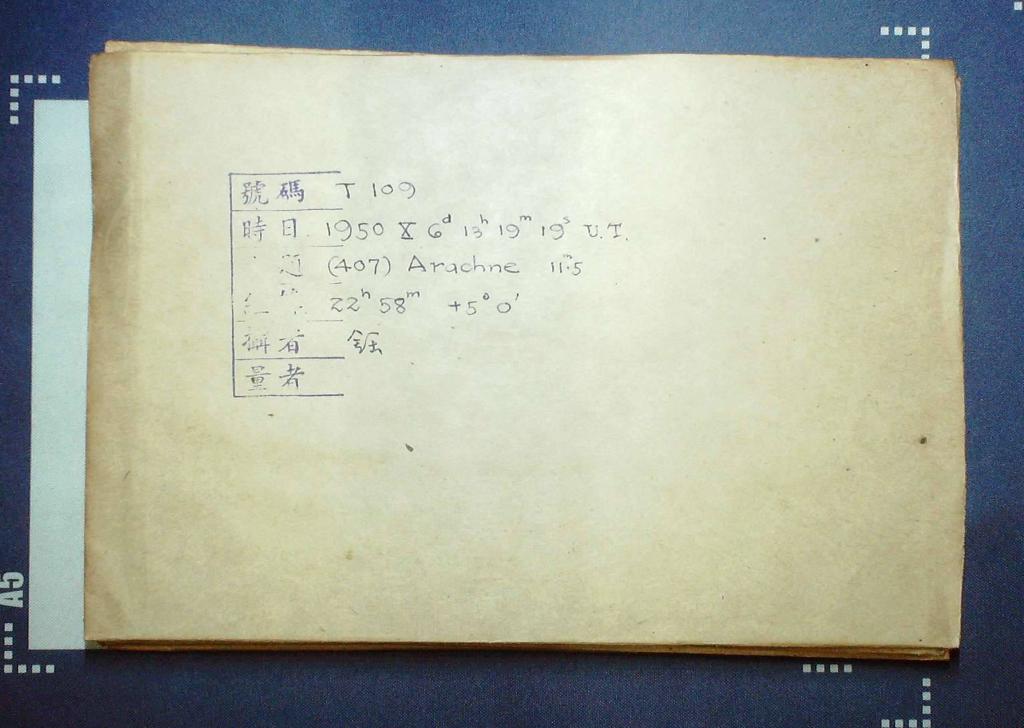 號碼 T 109
時日 1950 X 6ᵈ 13ʰ 19ᵐ 19ˢ U.T.
(407) Arachne 11ᵐ.5
22ʰ 58ᵐ +5° 0'
者
量者
A5